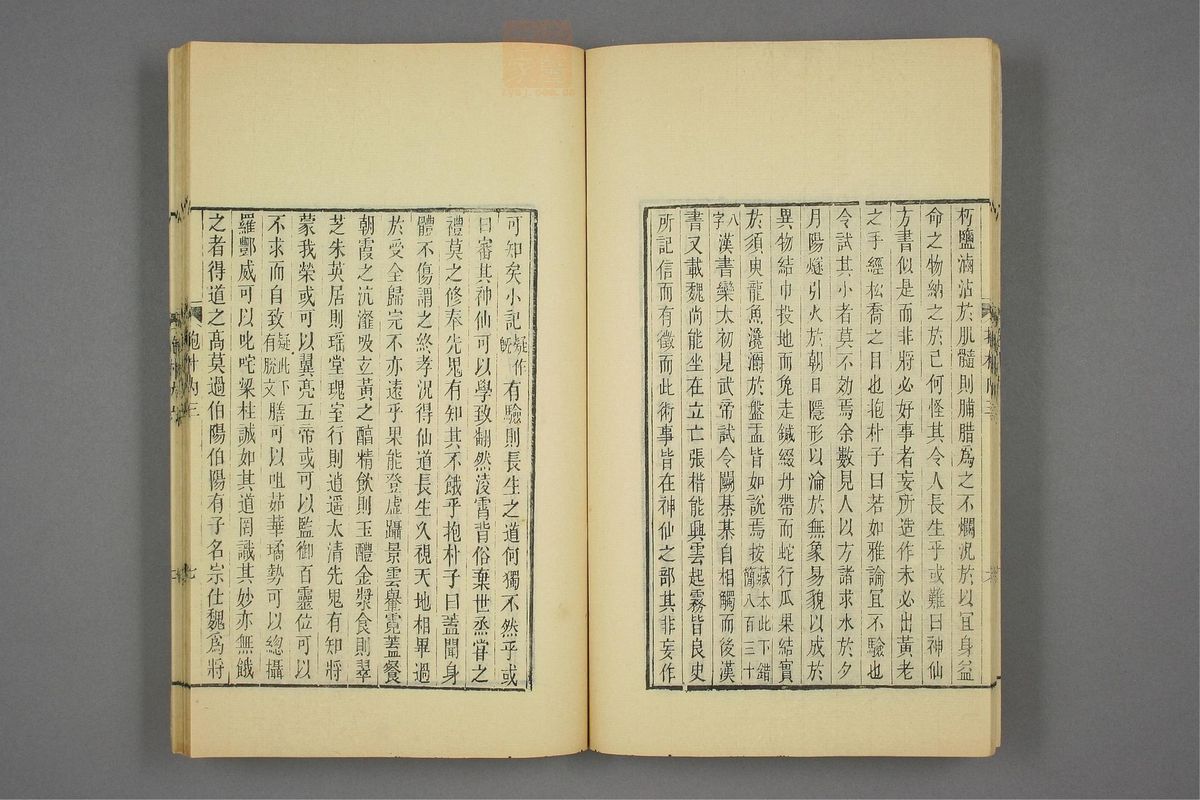 朽鹽滷沾於肌髓則脯腊爲之不爛況於以宜身益
命之物納之於己何怪其令人長生乎或難曰神仙
方書似是而非將必好事者妄所造作未必出黃老
之手經松喬之目也抱朴子曰若如雅論宜不驗也
今試其小者莫不効焉余數見人以方諸求水於夕
月陽燧引火於朝日隱形以淪於無象易貌以成於
異物結巾投地而兔走鍼綴丹帶而蛇行瓜果結實
於須臾龍魚瀺灂於盤盂皆如說焉按藏本此下錯簡八百三十
八字漢書欒太初見武帝試令鬭棊棊自相觸而後漢
書又載魏尚能坐在立亡張楷能興雲起霧皆良史
所記信而有徵而此術事皆在神仙之部其非妄作
可知矣小記疑作既有驗則長生之道何獨不然乎或
曰審其神仙可以學致翻然淩霄背俗棄世烝嘗之
禮莫之修奉先鬼有知其不餓乎抱朴子曰蓋聞身
體不傷謂之終孝況得仙道長生久視天地相畢過
於受全歸完不亦遠乎果能登虛躡景雲轝霓蓋餐
朝霞之沆瀣吸立黃之醕精飲則玉醴金漿食則翠
芝朱英居則瑤堂瑰室行則逍遥太清先鬼有知將
蒙我榮或可以翼亮五帝或可以監御百靈位可以
不求而自致疑此下有脫文膳可以咀茹華璚勢可以總攝
羅酆威可以叱咤梁柱誠如其道罔識其妙亦無餓
之者得道之高莫過伯陽伯陽有子名宗仕魏爲將
抱朴內三
七